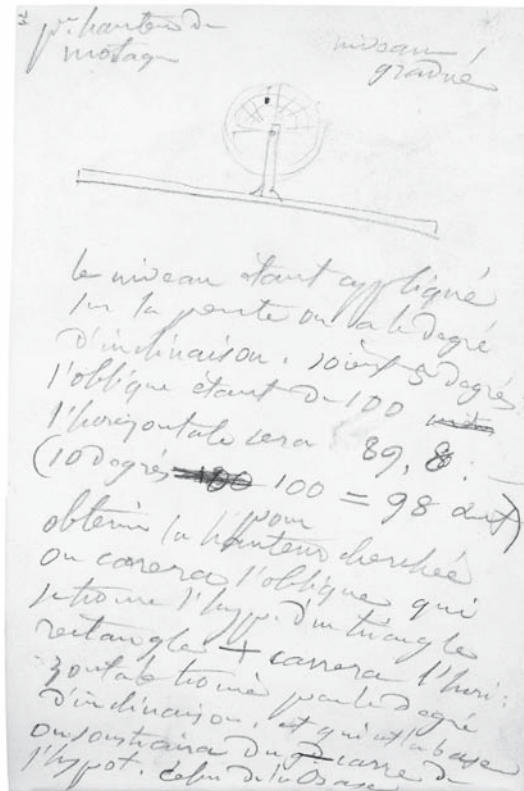 pr. hauteur de
montagne
niveau
gradué
le niveau étant appliqué
sur la pente on a le degré
d'inclinaison. soient 5 degrés
l'oblique étant de 100
l'horizontale sera 89,8.
(10 degrés 100 = 98 )
pour
obtenir la hauteur cherchée
on carrera l'oblique qui
se trouve l'hyp. d'un triangle
rectangle + carrera l'hori:
zontale trouvée par le degré
d'inclinaison. et qui est la base
on soustraira du carré de
l'hypot. celui de la base